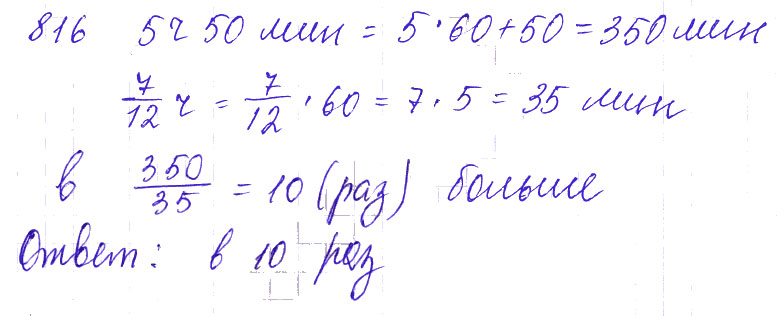 816 5ч 50 мин = 5·60+50 = 350 мин
7/12 ч = 7/12 · 60 = 7 · 5 = 35 мин
в 350/35 = 10 (раз) больше
Ответ: в 10 раз